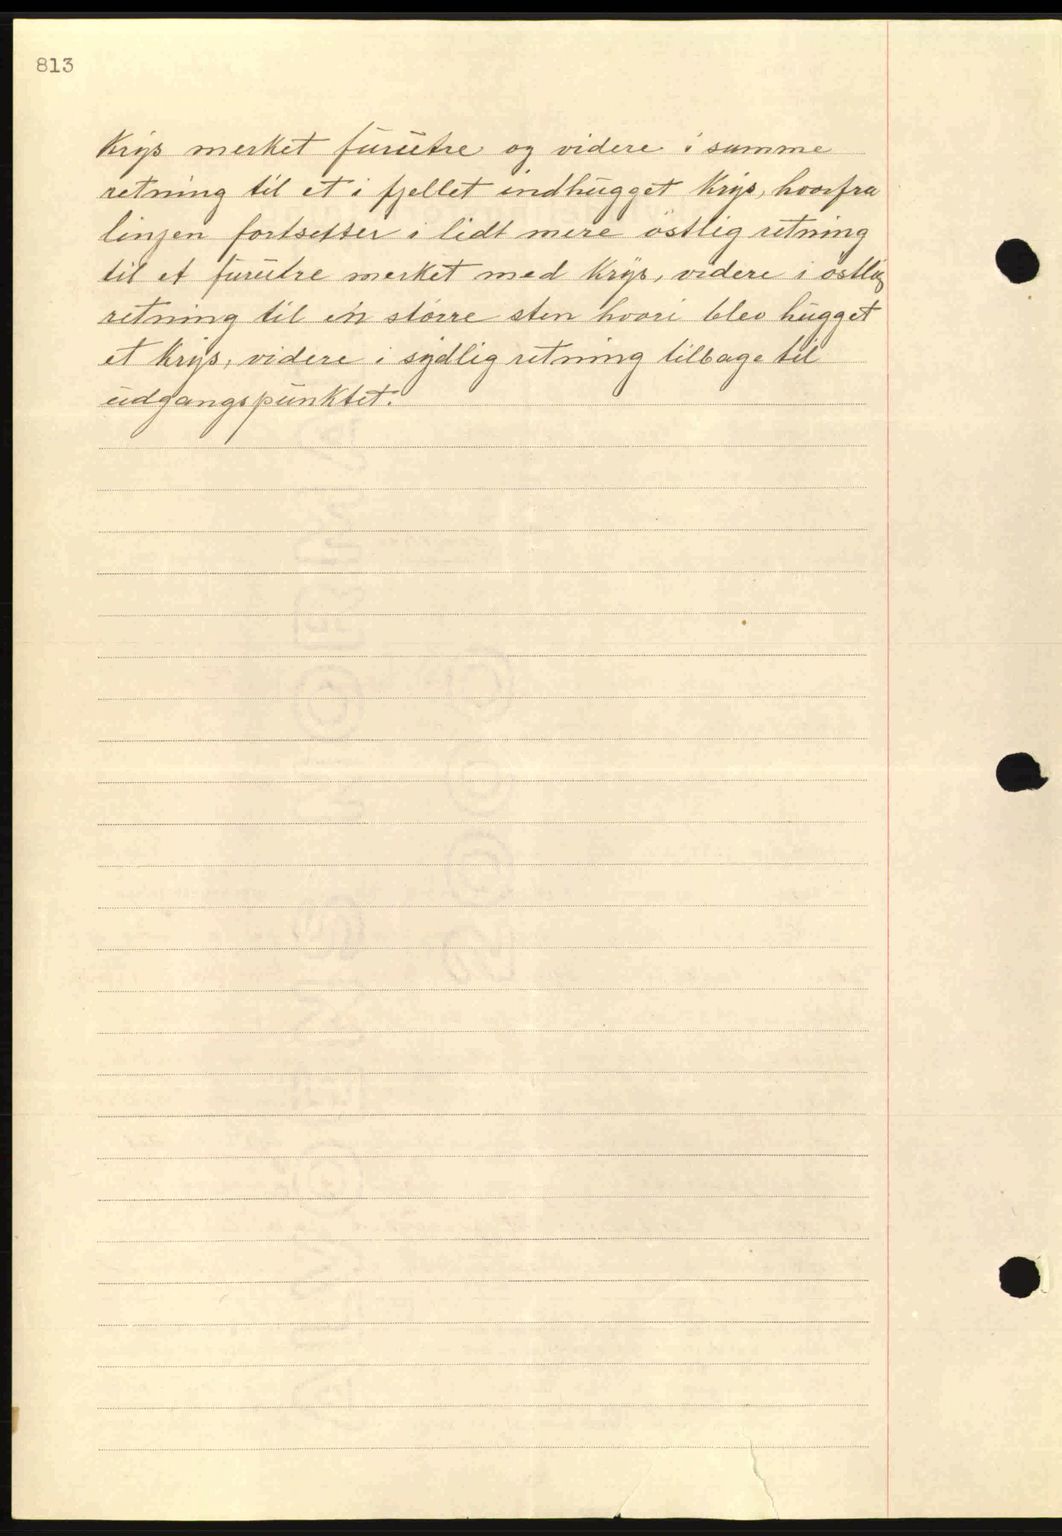 813
Krys merket furutre og videre i samme
retning til et i fjellet indhugget Krys, hvorfra
linjen fortsetter i lidt mere östlig retning
til et furutre merket med Krys, videre i ostlig
retning til én större sten hvori blev hugget
et Krys, videre i sydlig retning tilbage til
udgangspunktet.